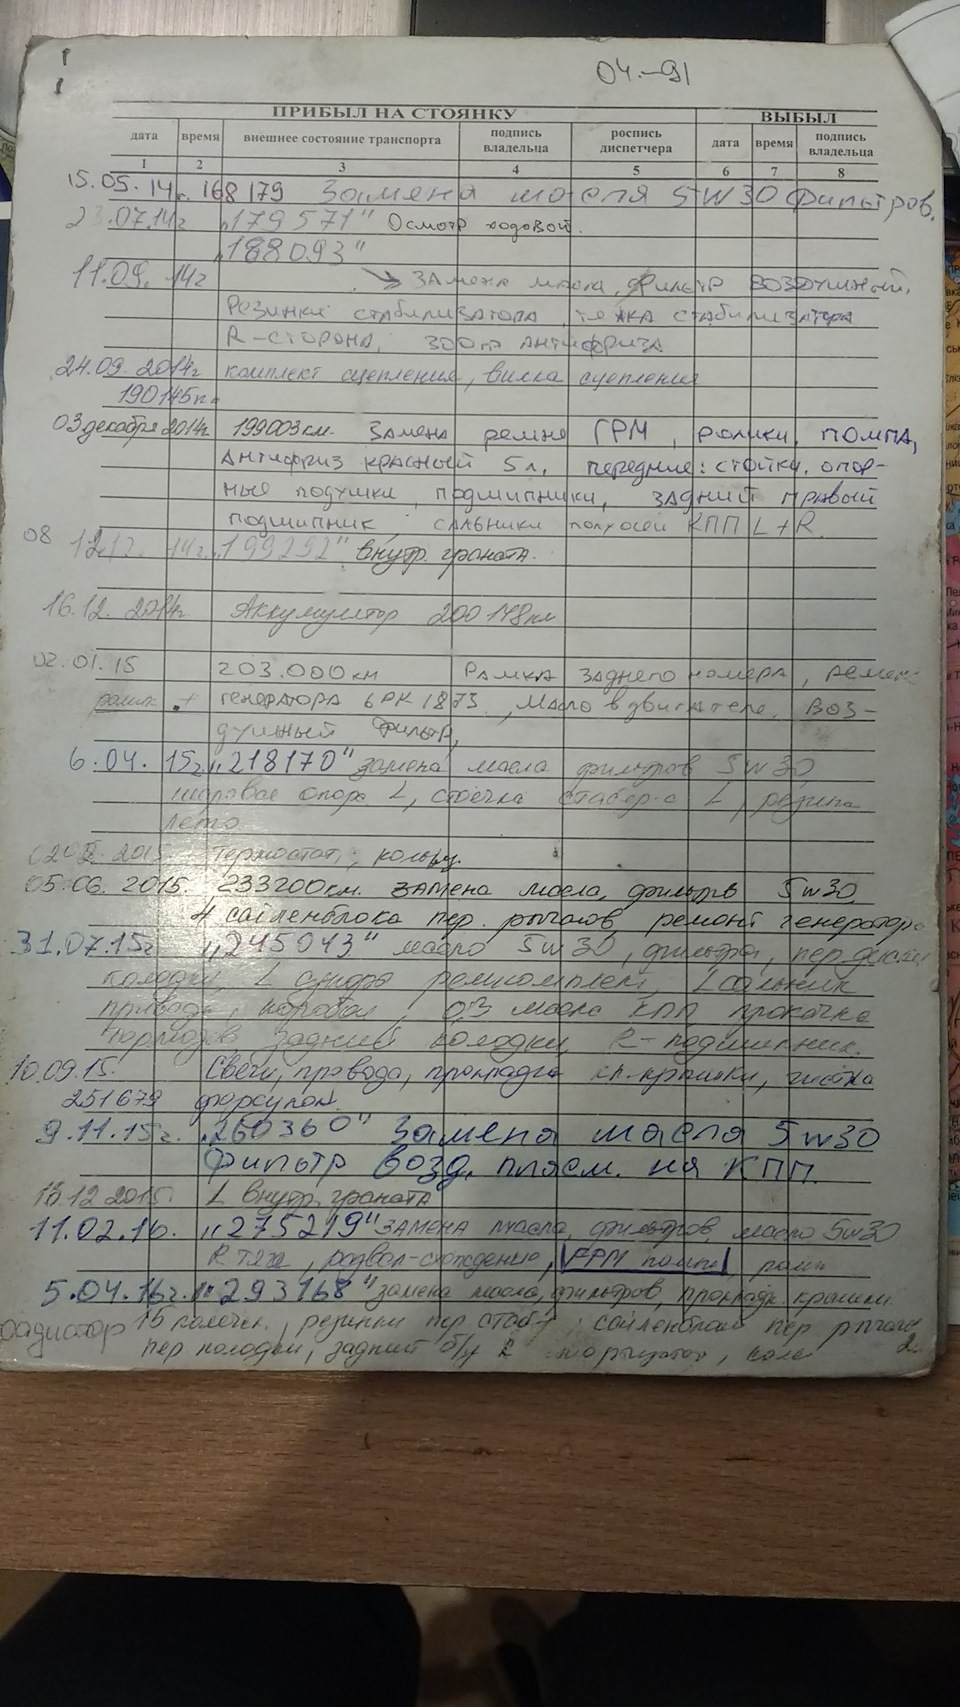 04.-91
ПРИБЫЛ НА СТОЯНКУ ВЫБЫЛ
дата время внешнее состояние транспорта подпись владельца роспись диспетчера дата время подпись владельца
1 2 3 4 5 6 7 8
15.05.14г. 168179 Замена масла 5W30 Фильтров.
23.07.14г „179571" Осмотр ходовой.
„188093"
11.09.14г → Замена масла, фильтр воздушный,
Резинки стабилизатора, тяжка стабилизатора
R-сторона, 300гр антифриза
24.09.2014г комплект сцепления, вилка сцепления
190145км
03 декабря 2014г. 199003км. Замена ремня ГРМ, ролики, помпа,
Антифриз красный 5л, передние: стойки, опор-
ные подушки, подшипники, задний правый
подшипник, сальники полуосей КПП L+R.
08 12.12. 14г. „199292" внутр. граната.
16.12.2014г Аккумулятор 200178км
02.01.15 203.000км Рамка заднего номера, ремень
ролик + генератора 6РК 1873, Масло в двигателе, воз-
душный фильтр,
6.04.15г. „218170" замена масла фильтров 5w30,
шаровая опора L, стоечка L, резина
лето
2015. термостат, кольцо.
05.06.2015. 233200км. замена масла, фильтр 5w30,
4 сайленблока пер. рычагов, ремонт генератора
31.07.15г „245043" масло 5w30, фильтра, пер.диски
колодки, L ремкомплект, L сальник
привода, коробки, 0,3 масла КПП прокачка
тормозов, задние колодки, R-подшипник.
10.09.15. Свечи, провода, прокладка кл.крышки, чистка
251679 форсунок.
9.11.15г. „260360" Замена масла 5w30
Фильтр возд. на КПП.
2015. L внутр. граната
11.02.16. „275219" замена масла, фильтров, масло 5w30
R тяга, развал-схождение, ГРМ помпа,
5.04.16г. „293168" замена масла, фильтров, прокладк. крышки
радиатор 15 , резинки пер стаб-, сайленблоки пер рычага
пер колодки, задний б/у 2